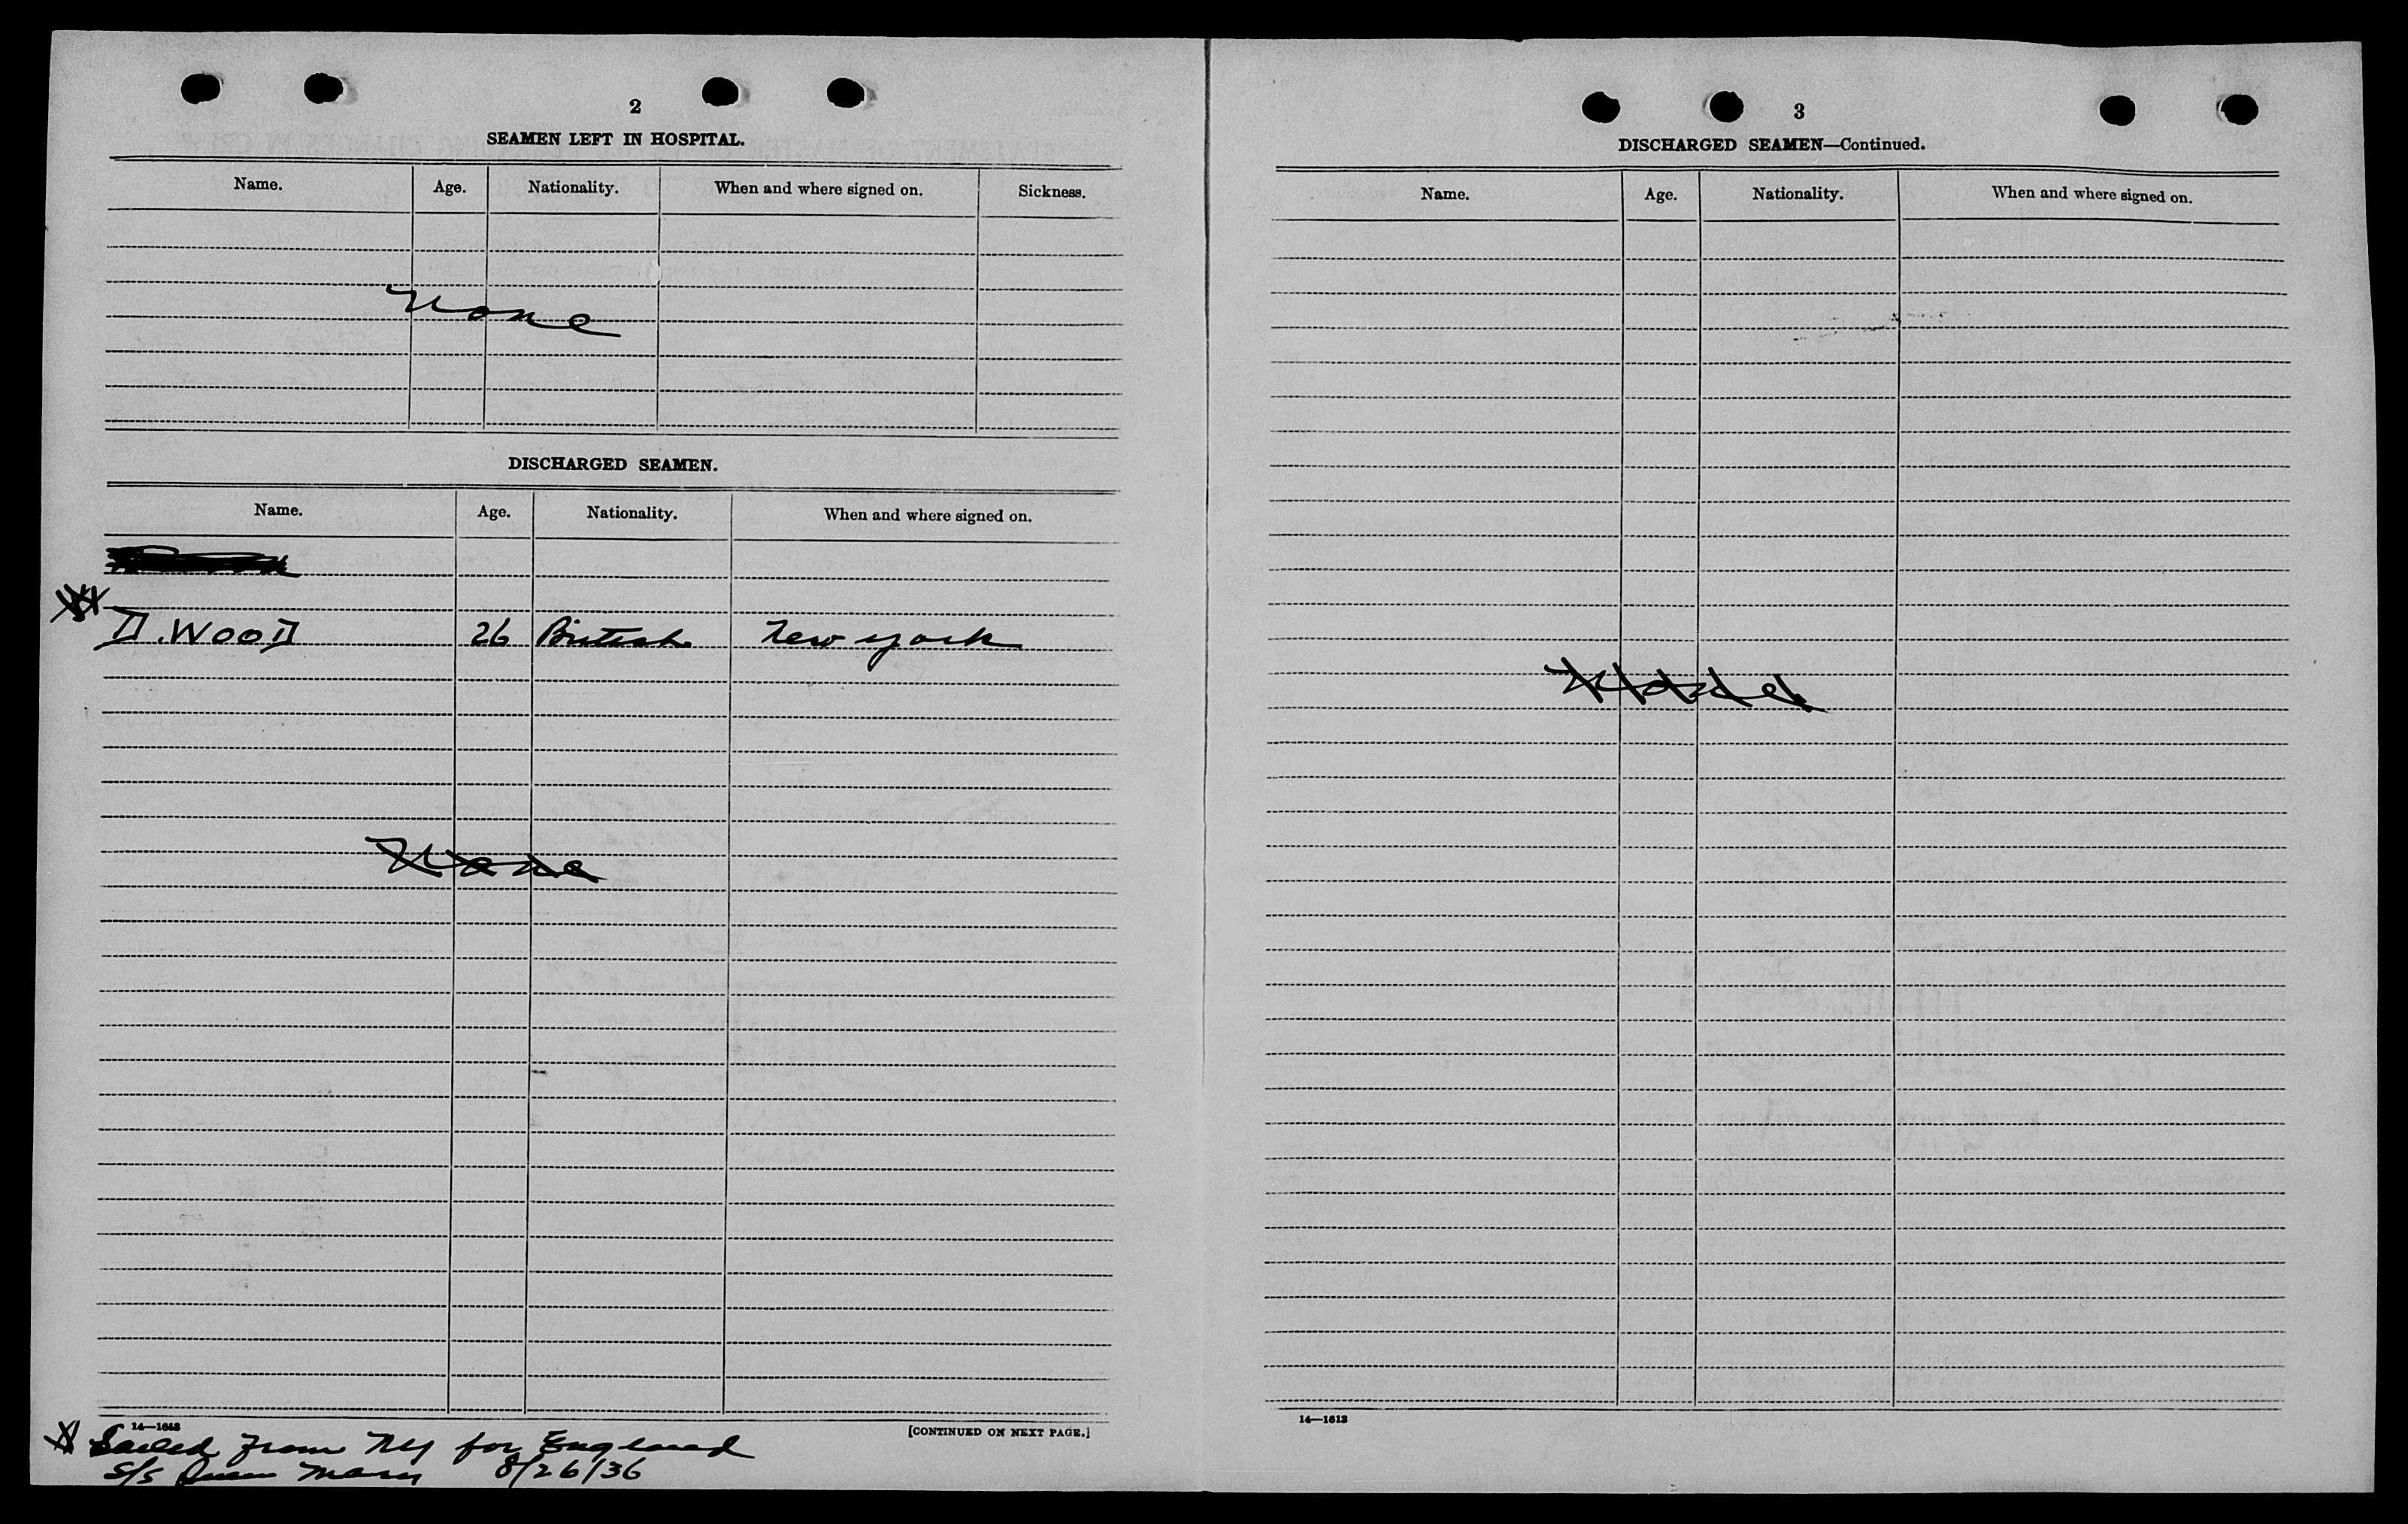 2
SEAMEN LEFT IN HOSPITAL.
Name. Age. Nationality. When and where signed on. Sickness.
None
DISCHARGED SEAMEN.
Name. Age. Nationality. When and where signed on.
D. WOOD 26 British New York
None
14—1613
[CONTINUED ON NEXT PAGE.]
Sailed from NY for England
S/S Queen Mary 8/26/36
3
DISCHARGED SEAMEN—Continued.
Name. Age. Nationality. When and where signed on.
None
14—1613